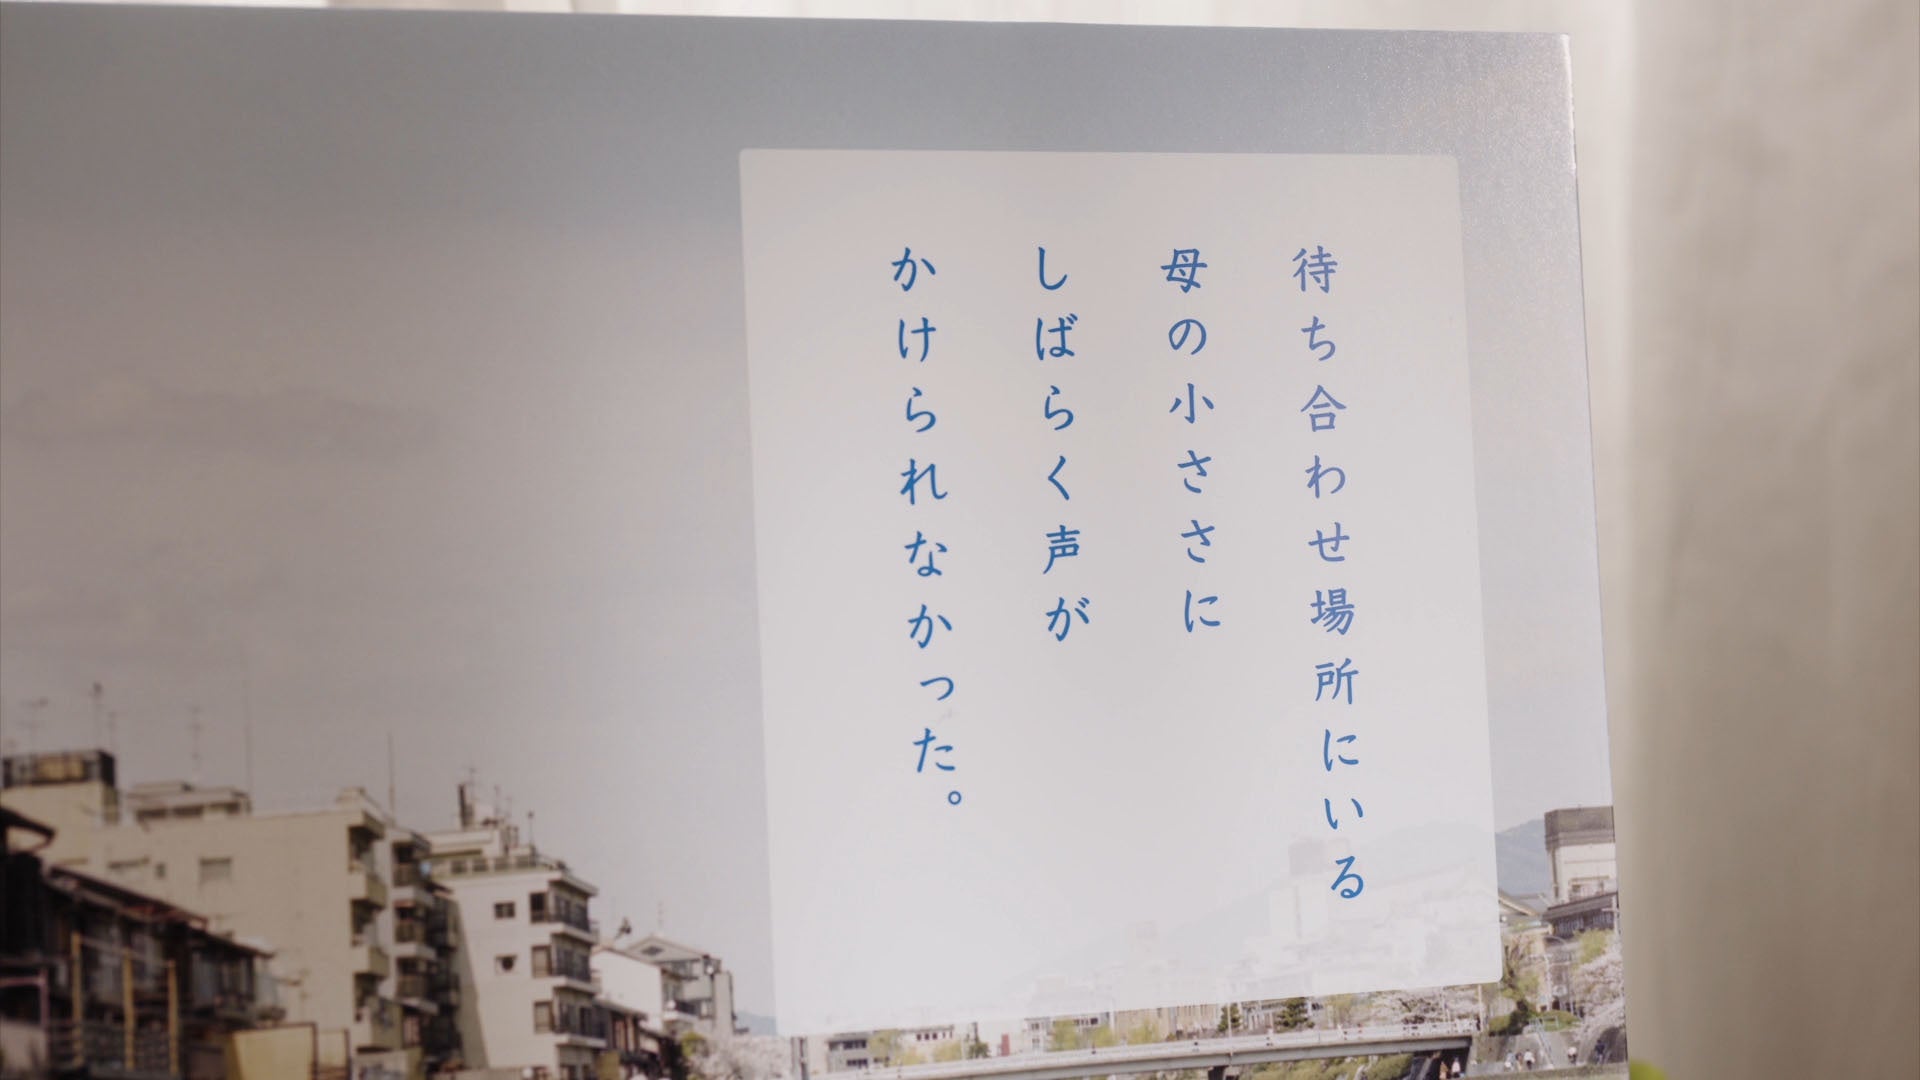 待ち合わせ場所にいる
母の小ささに
しばらく声が
かけられなかった。